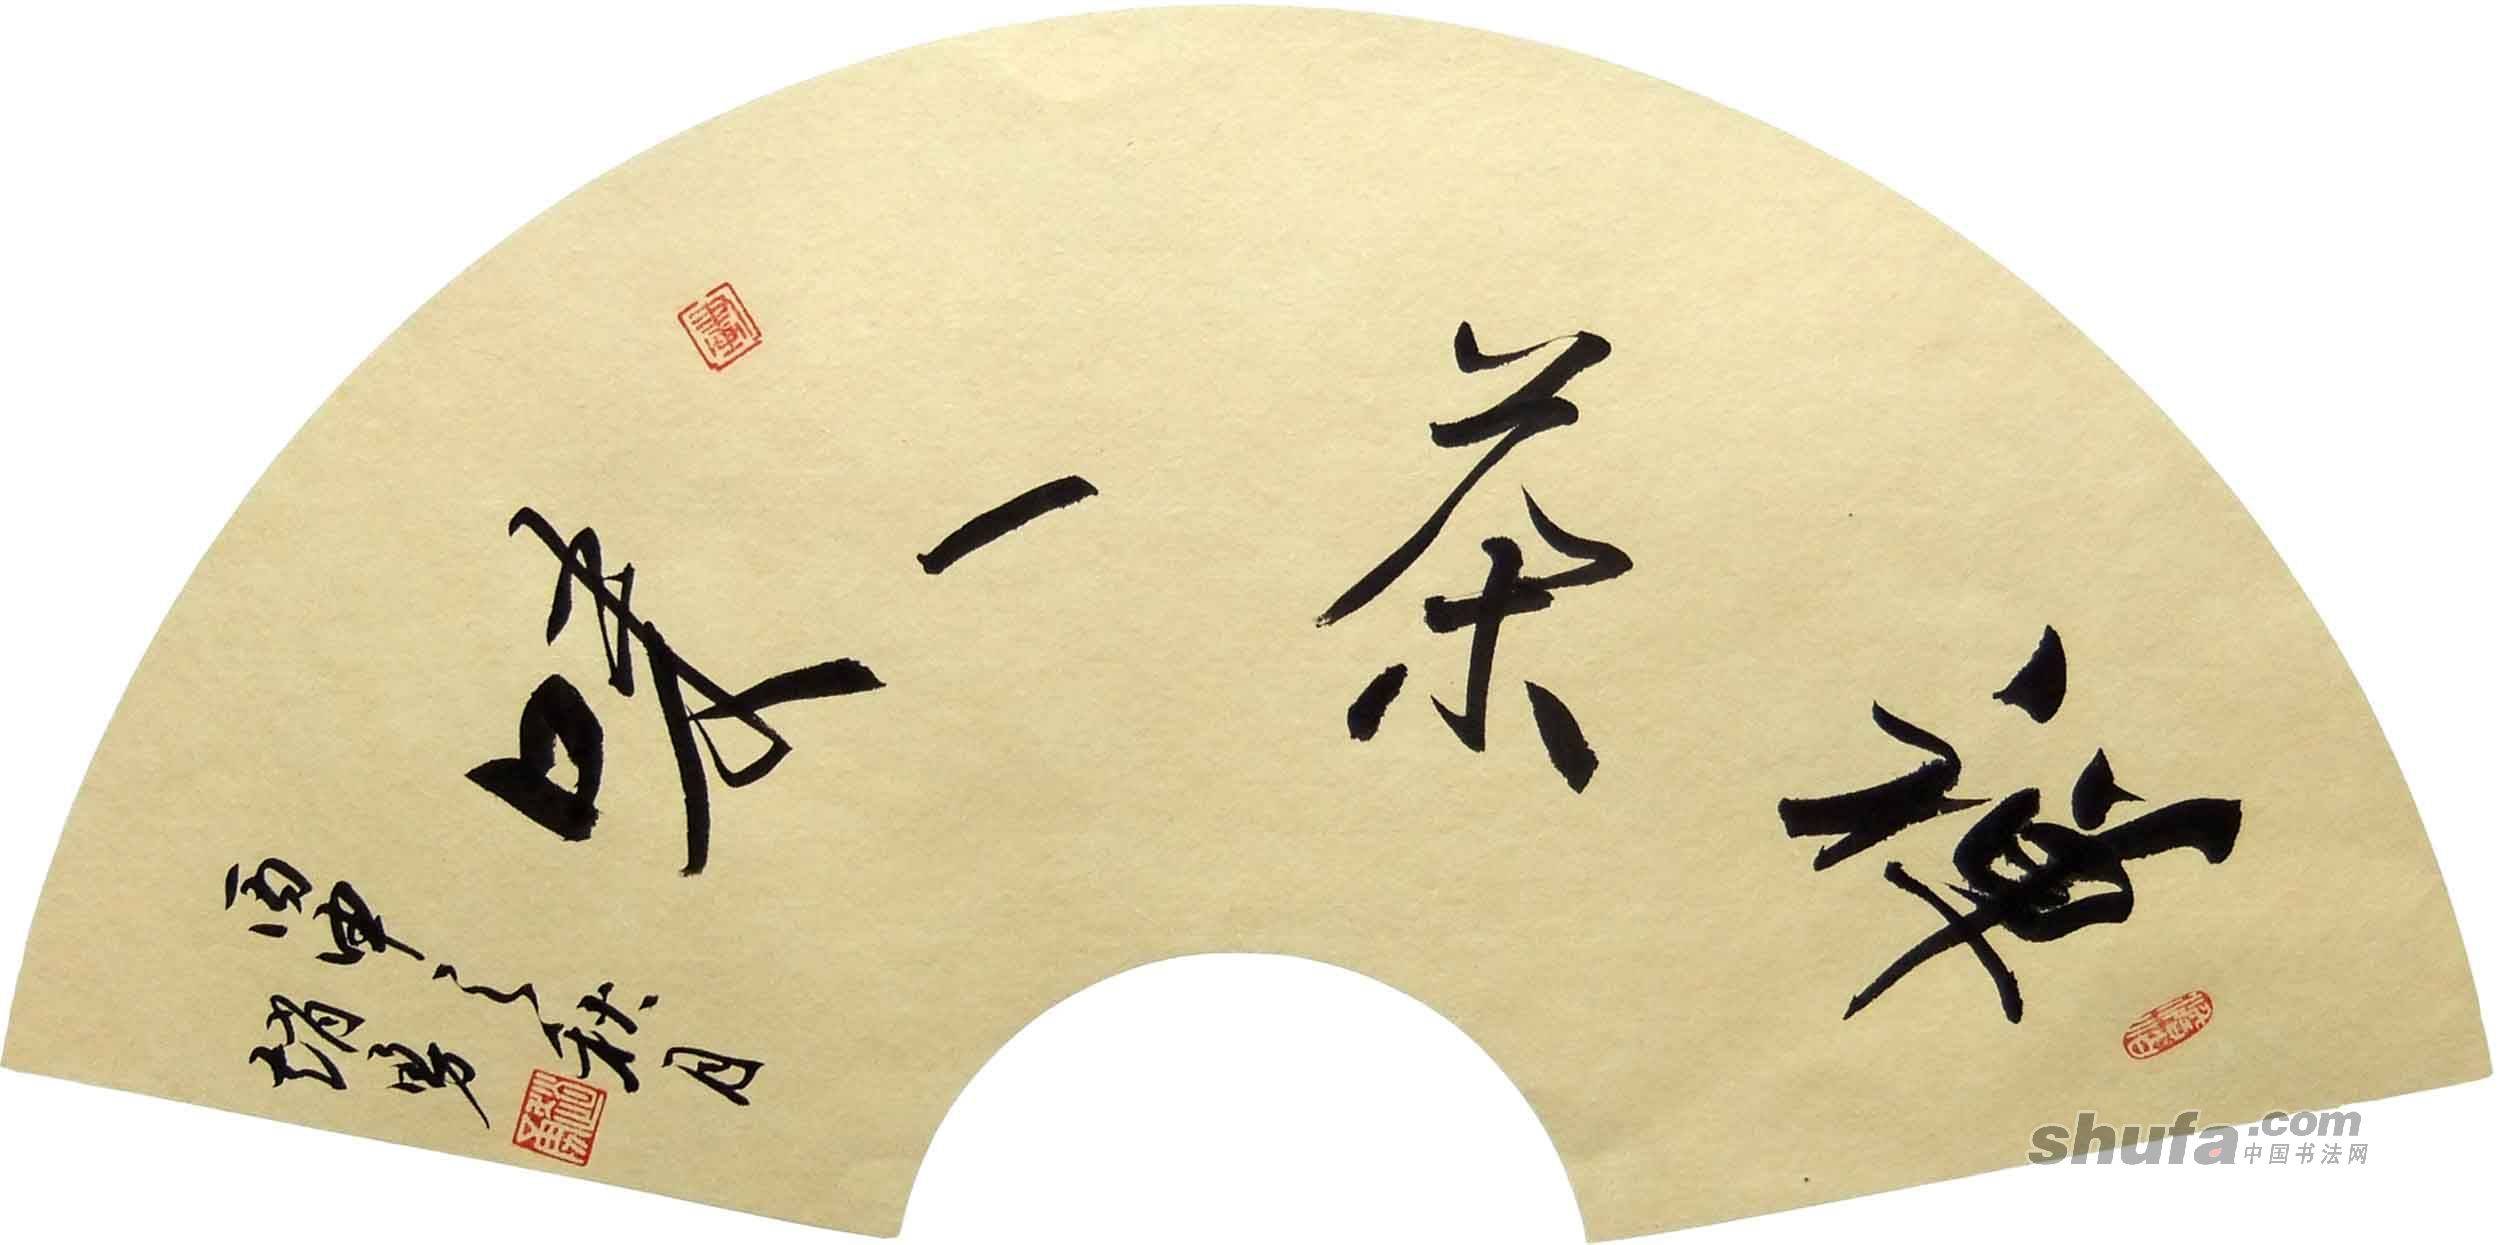 禅茶一味
丙申之秋月
shufa.com
中国书法网